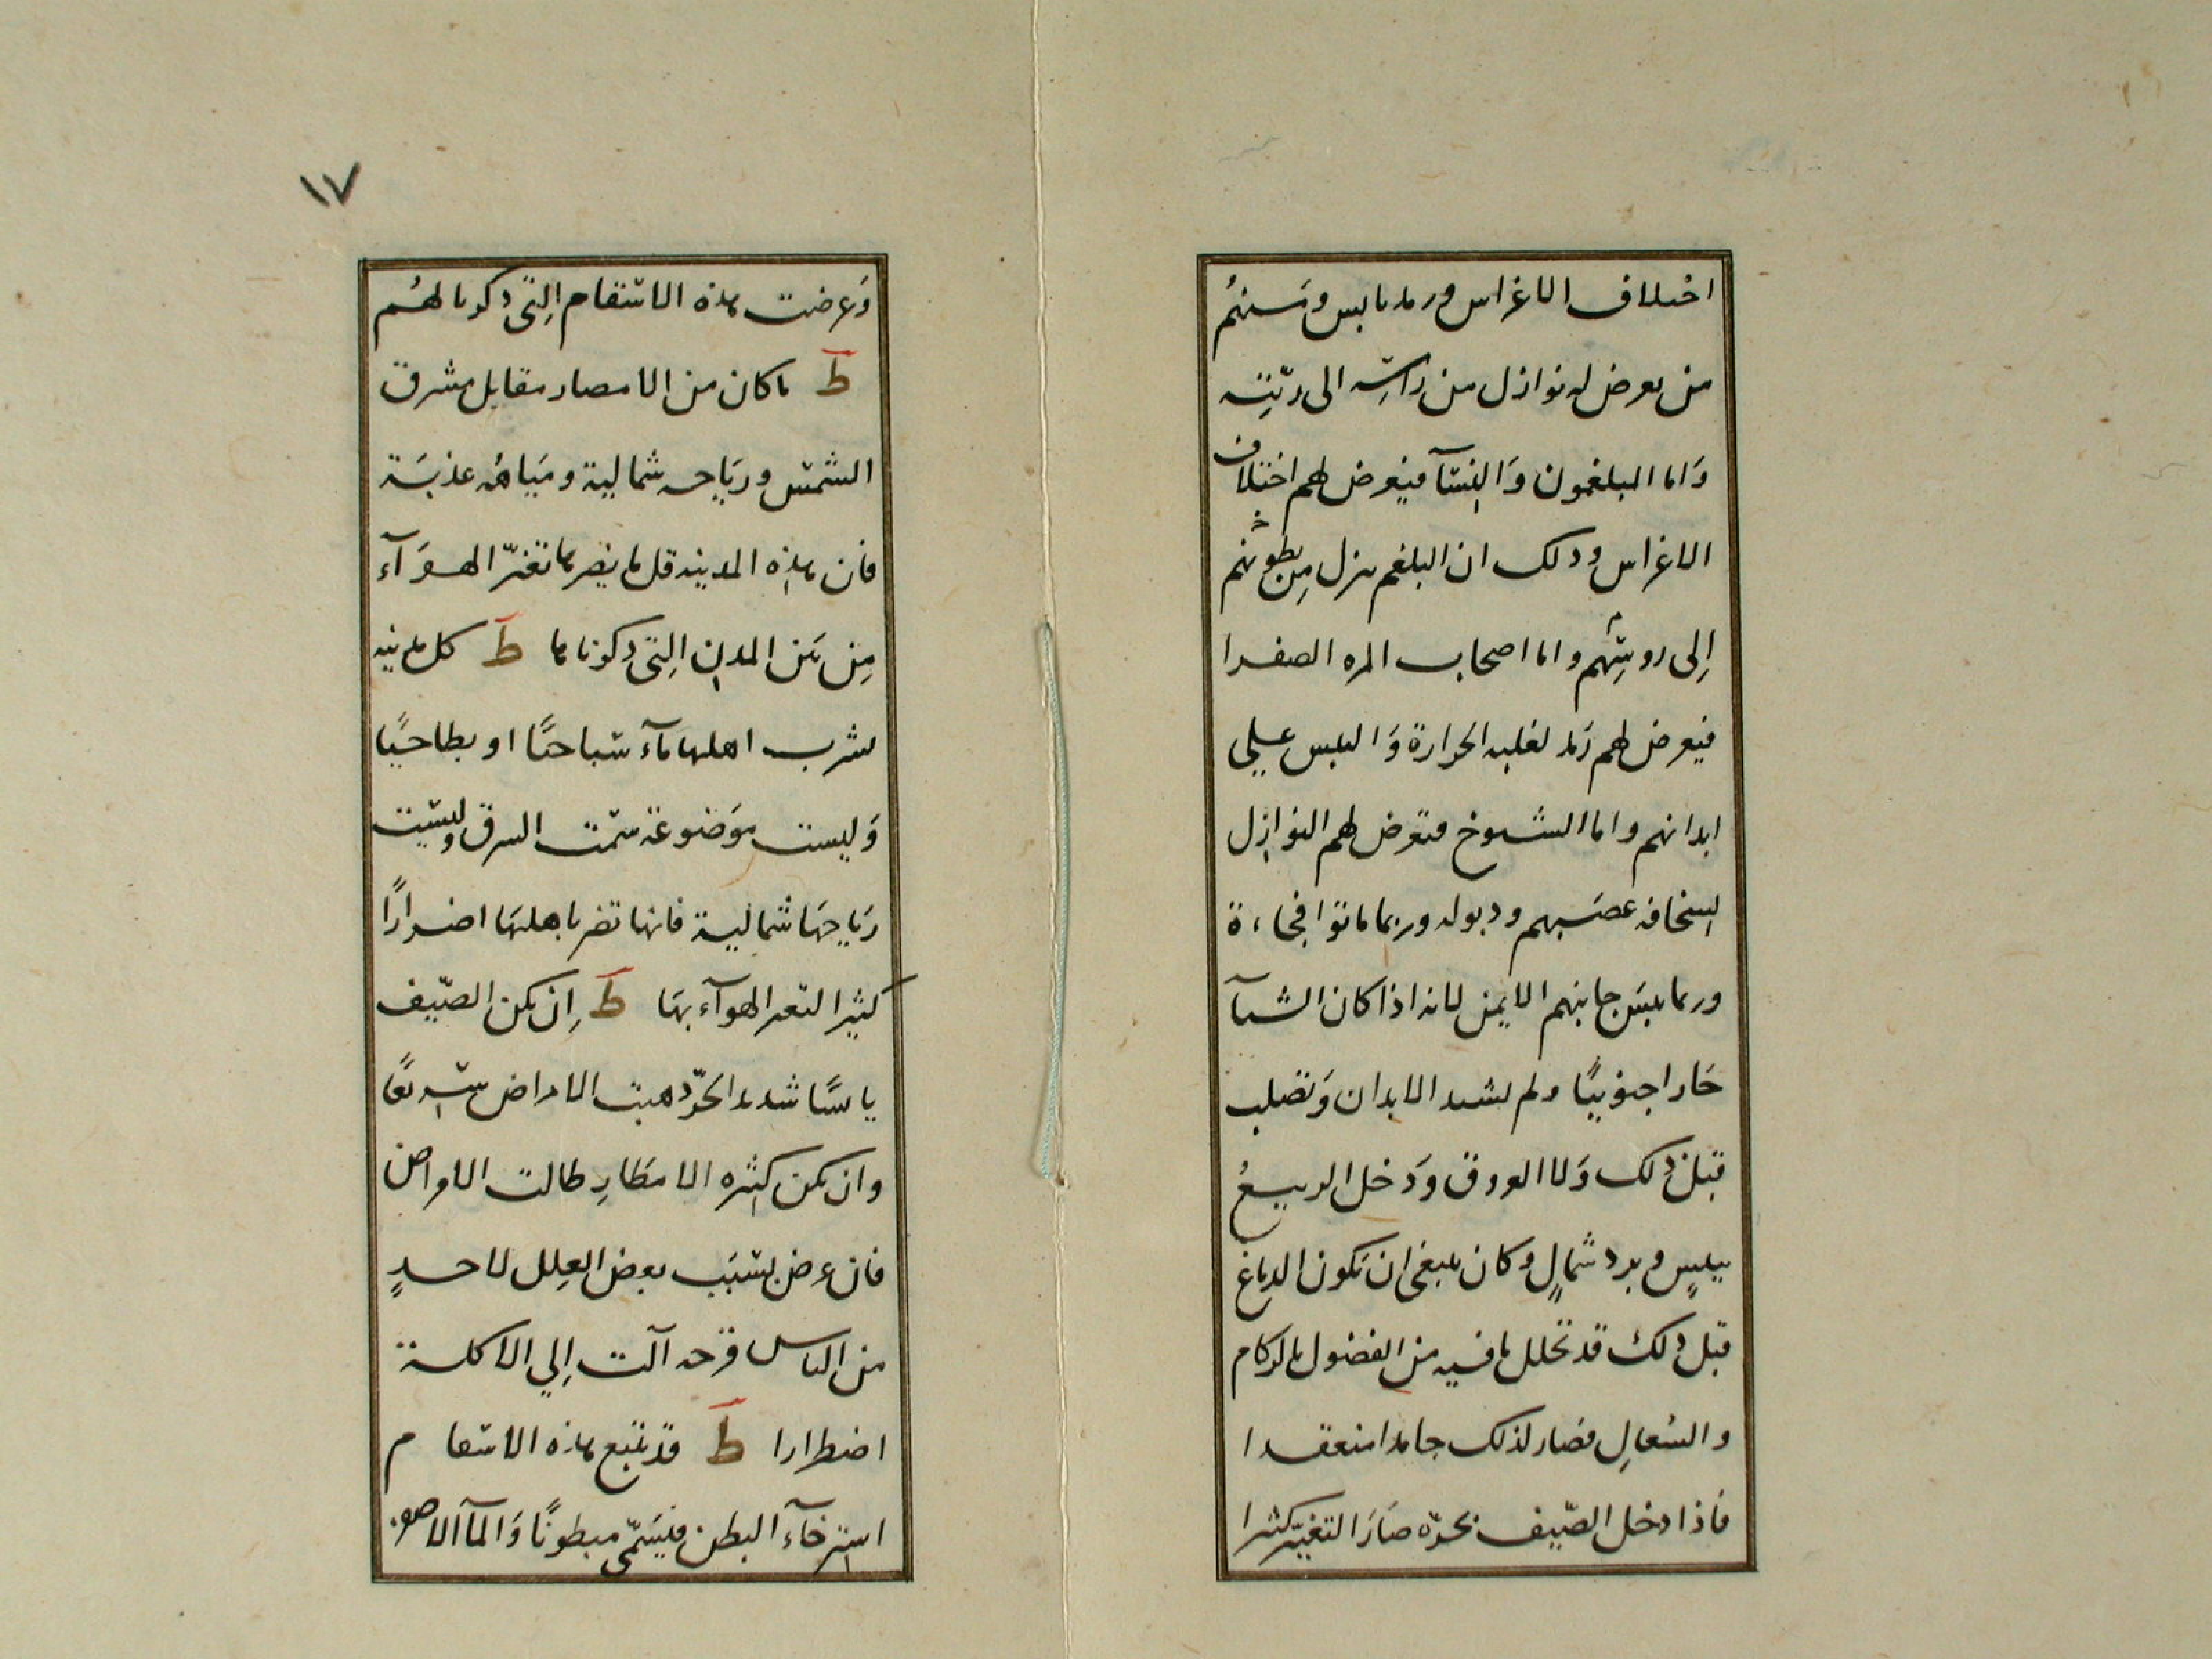 اختلاف الاغراس ورمد يابس ومنهم
من يعرض له نوازل من راسه الى ريته
وَاما المبلغمون وَالنسآ فيعرض لهم اختلاف
الاغراس وذلك ان البلغم ينزل مِن بطونهم
إلى روسِهم واما اصحاب المره الصفرا
فيعرض لهم رَمد لغلبه الحرارة وَاليبس علي
ابدانهم واما الشيوخ فتعرض لهم النوازِل
لسخافه عصَبهم وذبوله وربما ماتوا فجاءة
وربما يبسَ جانبهم الايمن لانه اذا كان الشتآ
حَارا جنوبيًا ولم يشتد الابدان وَتصلب
قبل ذلك وَلا العروق وَدَخل الربيعُ
بيبسٍ وبرد شمالٍ وكان ينبغى ان يَكون الدماغ
قبل ذلك قد تحلل ما فيه من الفضول بالزكام
والسُعالِ فصار لذلك جامدا منعقدا
فاذا دخل الصّيف بحرّه صَارَ التغيّر كثيرا
١٧
وَعرضت هذه الاسقام التِى ذكرنا لهُم
ط ما كان من الامصار مقابل مشرق
الشمس وريَاحه شمالية وميَاهُه عذبَة
فان هذه المدينه قل ما يضرها تغيّر الهوَآء
مِن بَين المدنِ التِى ذكرناها ط كل مدينه
يشرب اهلها مَآء سَباخيًا او بطاحيًا
وَليست موَضوعَة سَمت الشرق وليسَت
ريَاحهَا شمالية فانها تضر باهلهَا اضرارًا
كثيرا لتغير الهوآء بهَا ط اِن يكن الصّيف
يابسًا شديد الحَرّ ذهبت الامراض سَريعًا
وان يكن كثيره الامطَارِ طالت الامراض
فان عرض بسَبَب بعض العِلل لاحدٍ
من الناس قرحه آلت اِلي الآكلة
اضطرارا ط قد يتبع هذه الاسقام
استرخآء البطن فيسَمّى مبطونًا وَالمآ الاصفر